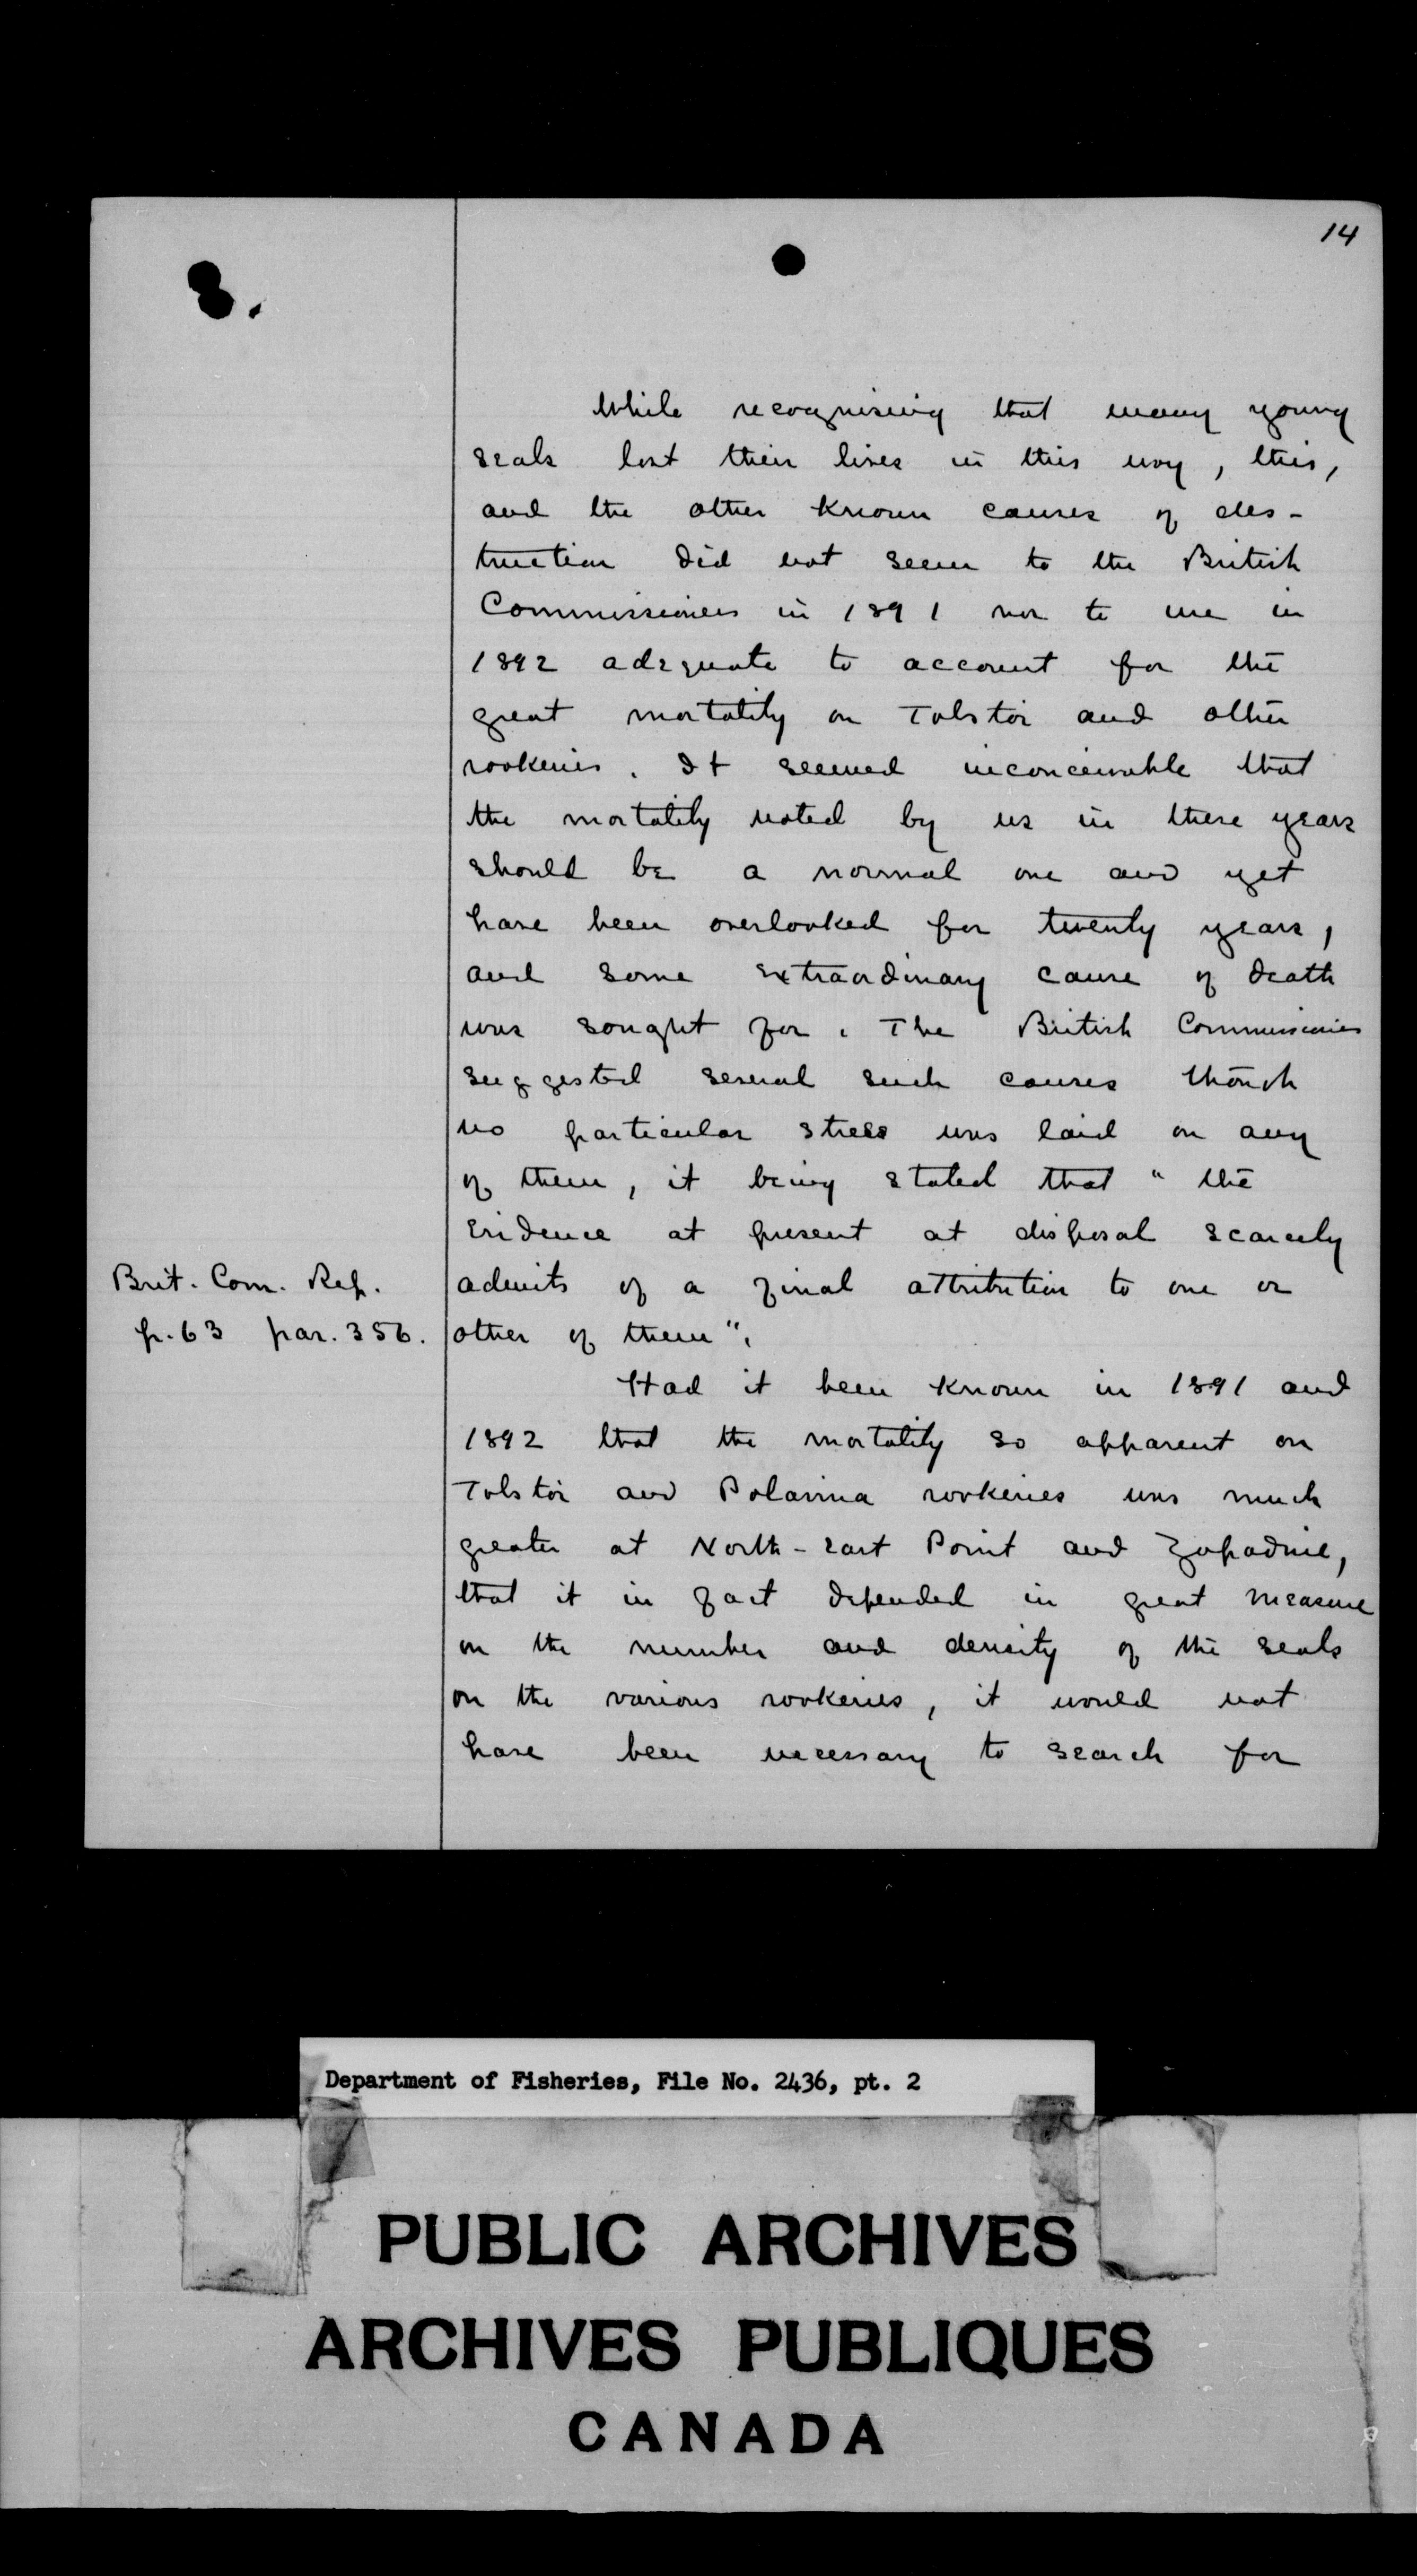 14
8.
While recognising that many young
seals lost their lives in this way, this,
and the other known causes of des-
truction did not seem to the British
Commissioners in 1891 nor to me in
1892 adequate to account for the
great mortality on Tolstoi and other
rookeries. It seemed inconceivable that
the mortality noted by us in these years
should be a normal one and yet
have been overlooked for twenty years,
and some extraordinary cause of death
was sought for. The British Commissioners
suggested several such causes though
no particular stress was laid on any
of them, it being stated that "the
evidence at present at disposal scarcely
Brit. Com. Rep.
admits of a final attribution to one or
p. 63 par. 356.
other of them".
Had it been known in 1891 and
1892 that the mortality so apparent on
Tolstoi and Polavina rookeries was much
greater at North-east Point and Zapadnie,
that it in fact depended in great measure
on the number and density of the seals
on the various rookeries, it would not
have been necessary to search for
Department of Fisheries, File No. 2436, pt. 2
PUBLIC ARCHIVES
ARCHIVES PUBLIQUES
CANADA